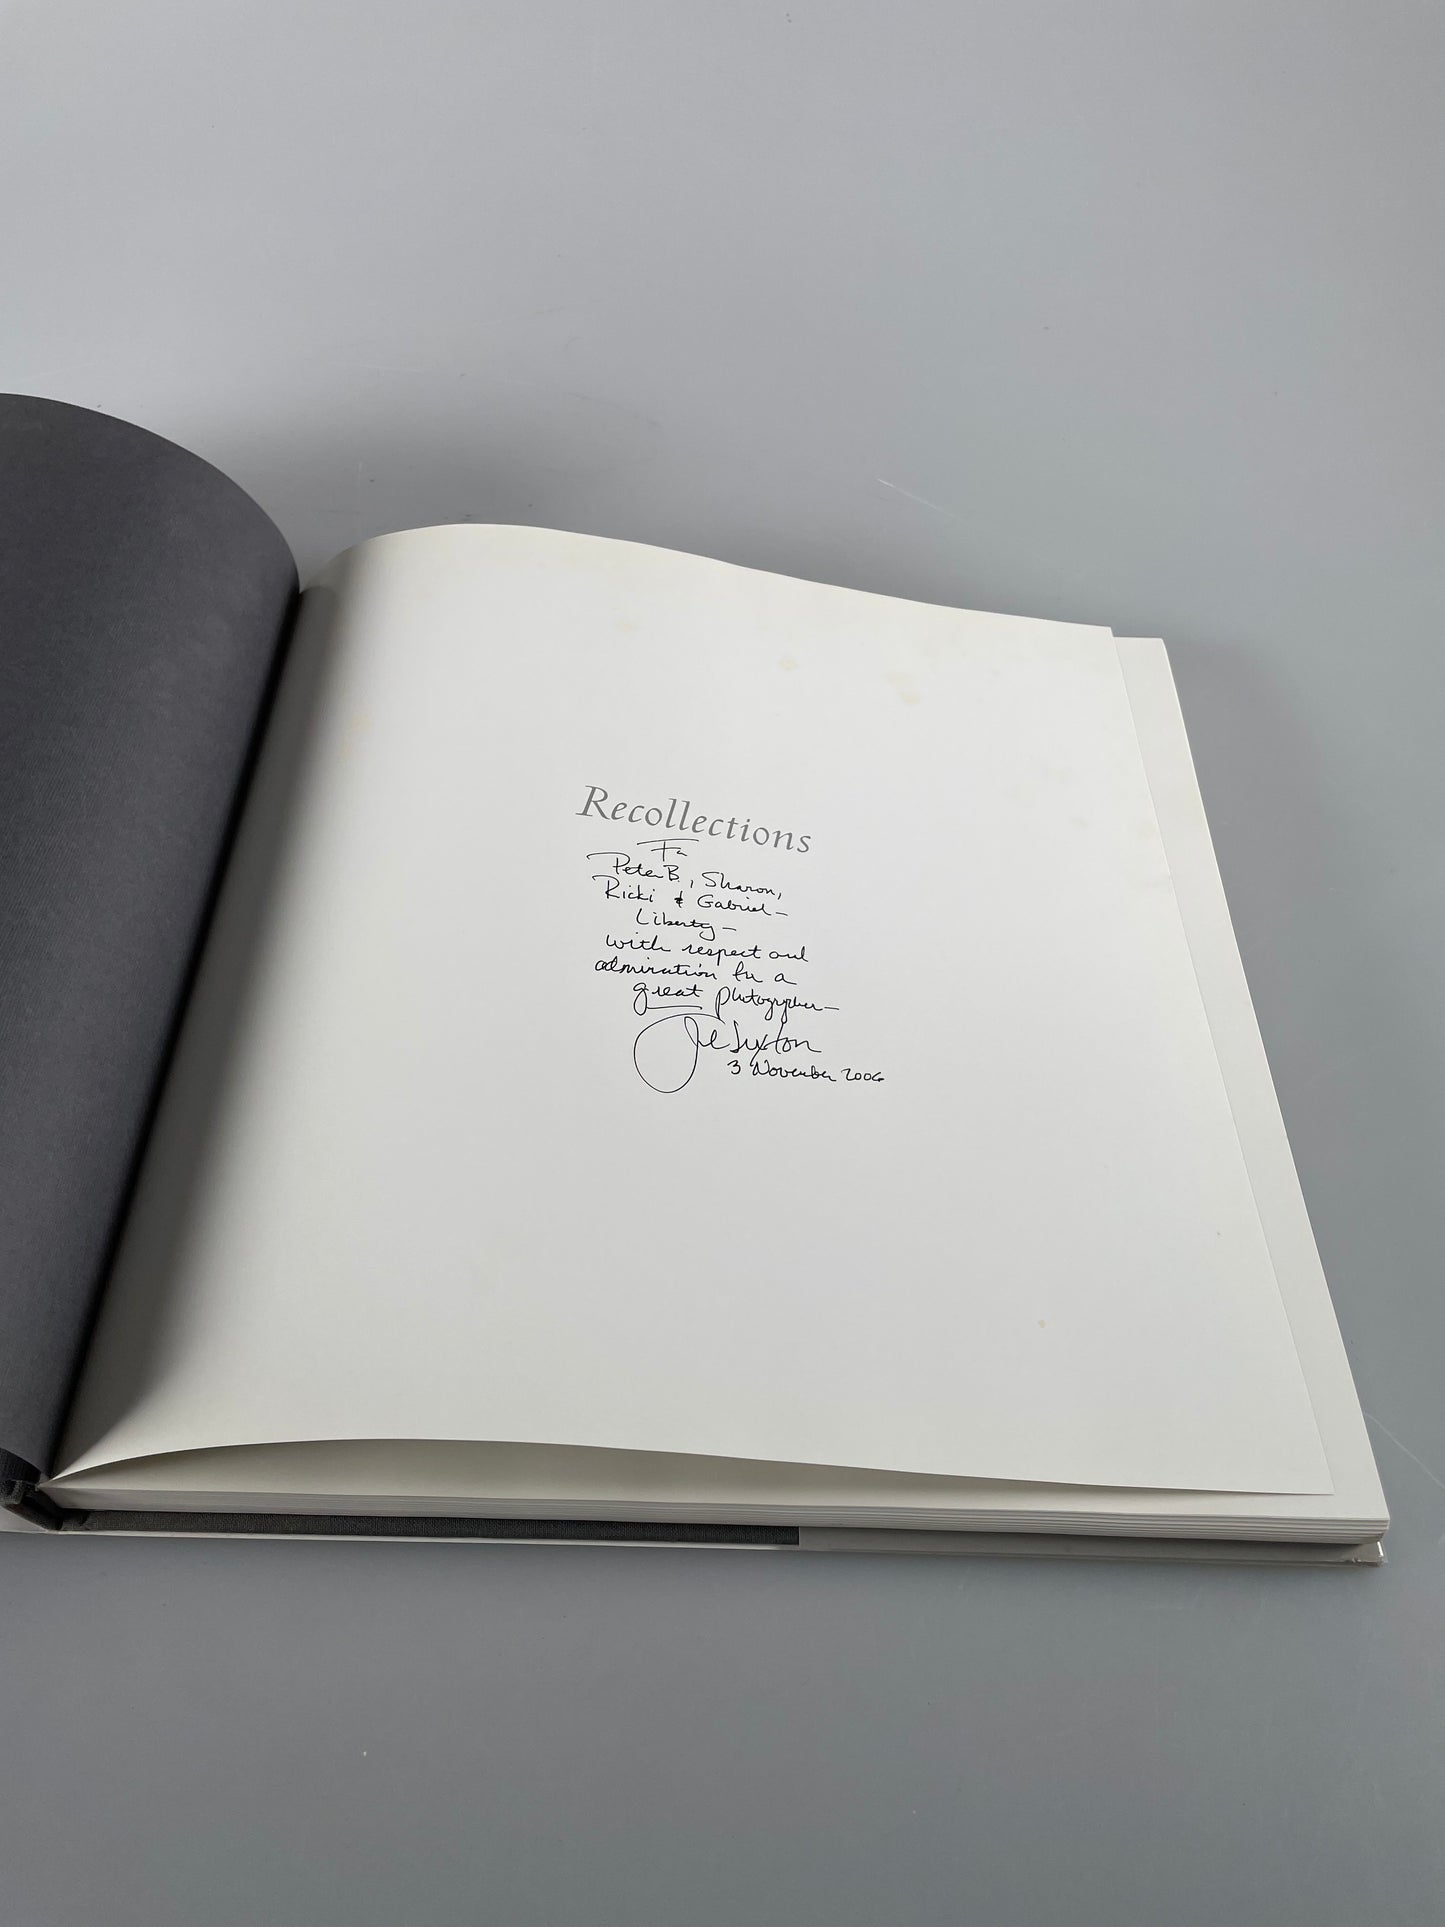 Recollections
For
Peter B., Sharon,
Ricki & Gabriel—
Liberty—
with respect and
admiration for a
great photographer—
John Sexton
3 November 2006